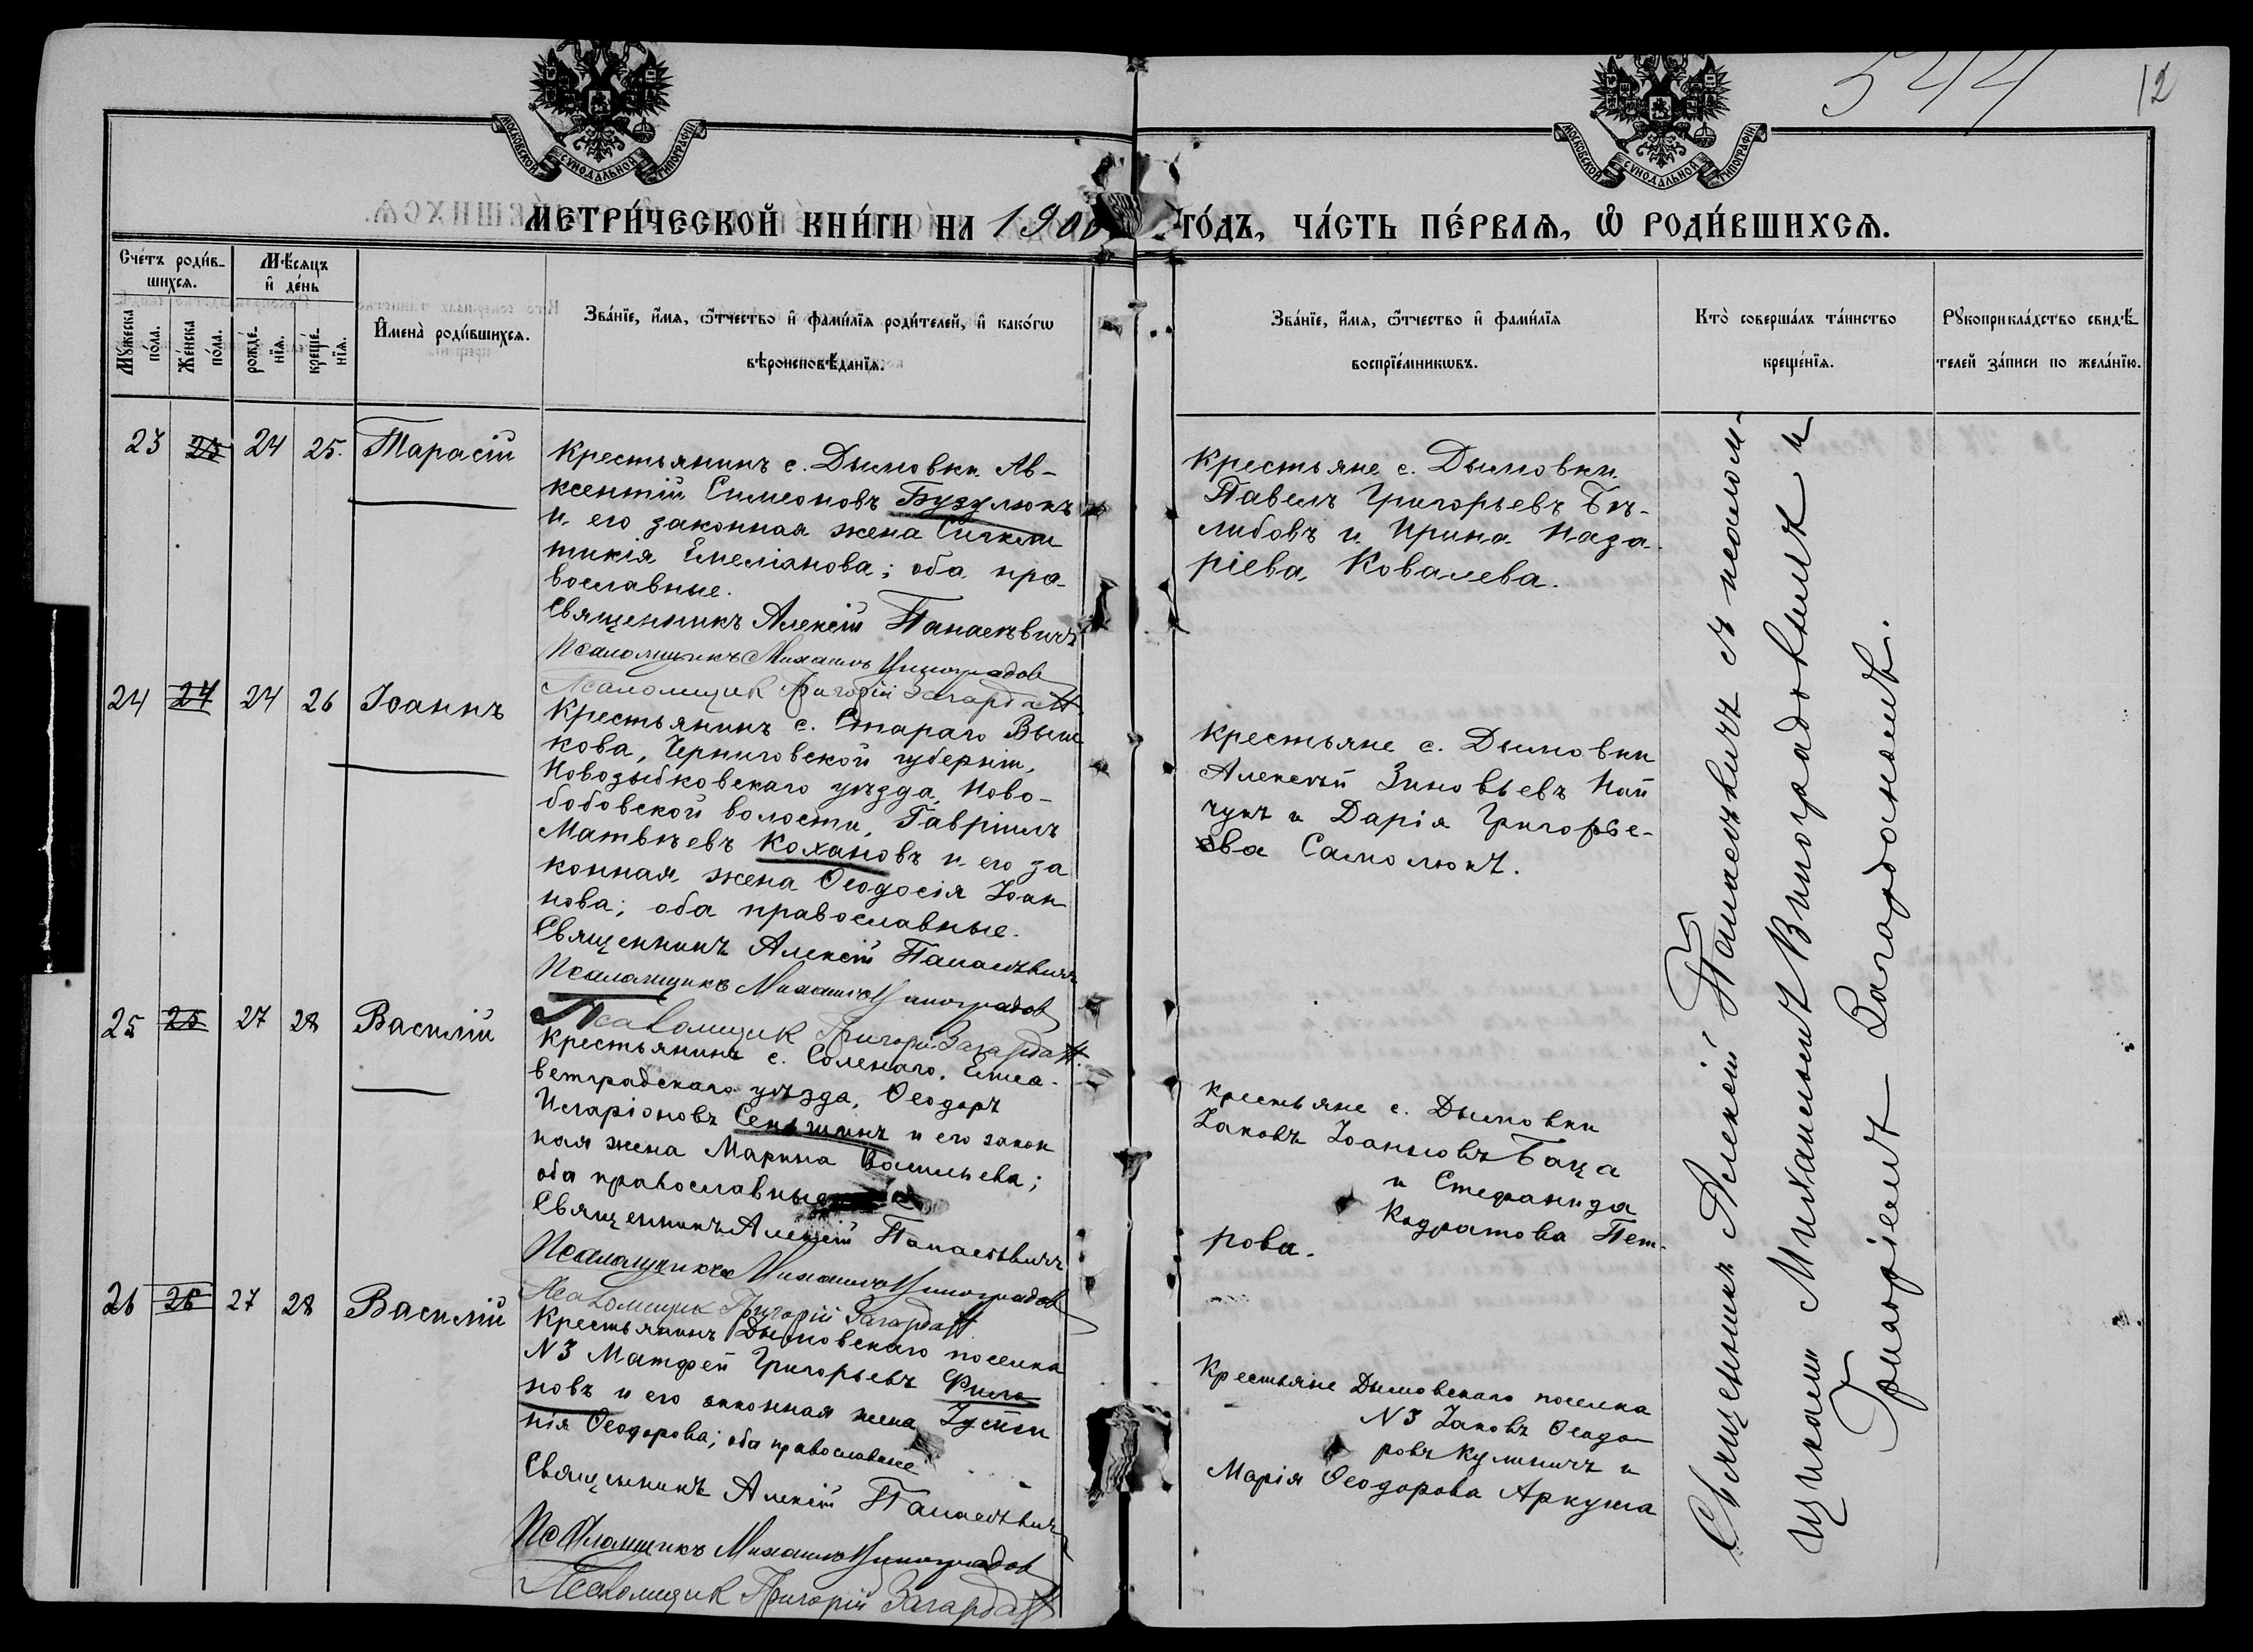 МОСКОВСКОЙ СѴНОДАЛЬНОЙ ТИПОГРАФІИ.
МОСКОВСКОЙ СѴНОДАЛЬНОЙ ТИПОГРАФІИ.
544
12
МЕТРИ́ЧЕСКОЙ КНИ́ГИ НА 1900
ГО́ДЪ, ЧА́СТЬ ПЕ́РВАѦ, Ѡ҆ РОДИ́ВШИХСѦ.
Сче́тъ роди́в-
шихсѧ.
Мꙋжеска по́ла.
Же́нска по́ла.
Мѣ́сяцъ
и҆ де́нь
рожде́-
нїѧ.
креще́-
нїѧ.
И҆мена̀ роди́вшихсѧ.
Зва́нїе, и҆́мѧ, ѻ҆́тчество и҆ фами́лїѧ роди́телей, и҆ како́гѡ
вѣроисповѣ́данїѧ.
Зва́нїе, и҆́мѧ, ѻ҆́тчество и҆ фами́лїѧ
воспрїе́мникѡвъ.
Кто̀ соверша́лъ та́инство
креще́нїѧ.
Рꙋкоприкла́дство свидѣ́-
телей за́писи по жела́нїю.
23 23 24 25. Тарасій
Крестьянинъ с. Дымовки Ав-
ксентій Симеоновъ Бузулюкъ
и его законная жена Синкли-
тикія Емеліанова; оба пра-
вославные.
Священникъ Алексій Панаевичъ
Псаломщикъ Михаилъ Виноградов
Псаломщик Григорій Загардан
Крестьяне с. Дымовки
Павелъ Григорьевъ Бѣ-
либовъ и Ирина Наза-
ріева Ковалева.
24 24 24 26 Іоаннъ
Крестьянинъ с. Стараго Выш
кова, Черниговской губерніи,
Новозыбковскаго уѣзда, Ново-
бобовской волости, Гавріилъ
Матвѣевъ Кохановъ и его за
конная жена Ѳеодосія Іоан
нова; оба православные.
Священникъ Алексій Панаевичъ
Псаломщикъ Михаилъ Виноградов
Псаломщик Григорій Загардан
Крестьяне с. Дымовки
Алексѣй Зиновьевъ Най
чукъ и Дарія Григорье-
ва Самолюкъ.
25 25 27 28 Василій
Крестьянинъ с. Соленаго, Елиса-
ветградскаго уѣзда, Ѳеодоръ
Иларіоновъ Сеньшинъ и его закон
ная жена Марина Васильева;
оба православные
Священникъ Алексій Панаевичъ
Псаломщикъ Михаилъ Виноградов
Псаломщик Григорій Загардан
Крестьяне с. Дымовки
Іаковъ Іоанновъ Баца
и Стефанида
Кодратова Пет-
рова.
26 26 27 28 Василій
Крестьянинъ Дымовскаго поселка
N3 Матфей Григорьевъ Фило
новъ и его законная жена Іусти
нія Ѳеодорова; оба православные
Священникъ Алексій Панаевичъ
Псаломщикъ Михаилъ Виноградов
Псаломщик Григорій Загардан
Крестьяне Дымовскаго поселка
N3 Іаковъ Ѳеодо
ровъ Куличъ и
Марія Ѳеодорова Аркуша
Священникъ Алексій Панаевичъ съ псалом-
щиками Михаиломъ Виноградовымъ и
Григоріемъ Загарданомъ.